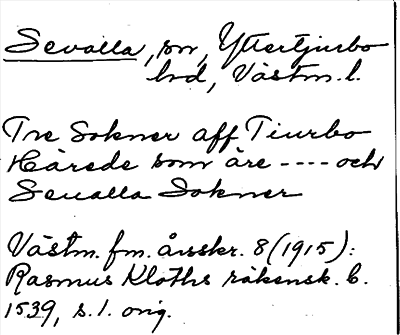 Sevalla, sn, Yttertjurbo
hd, Västm. l.
Tre Sokner aff Tiurbo
Härede som äre ---- och
Seualla Sokner
Västm. fm. årsskr. 8 (1915):
Rasmus Kloths räkensk. b.
1539, s. 1. orig.